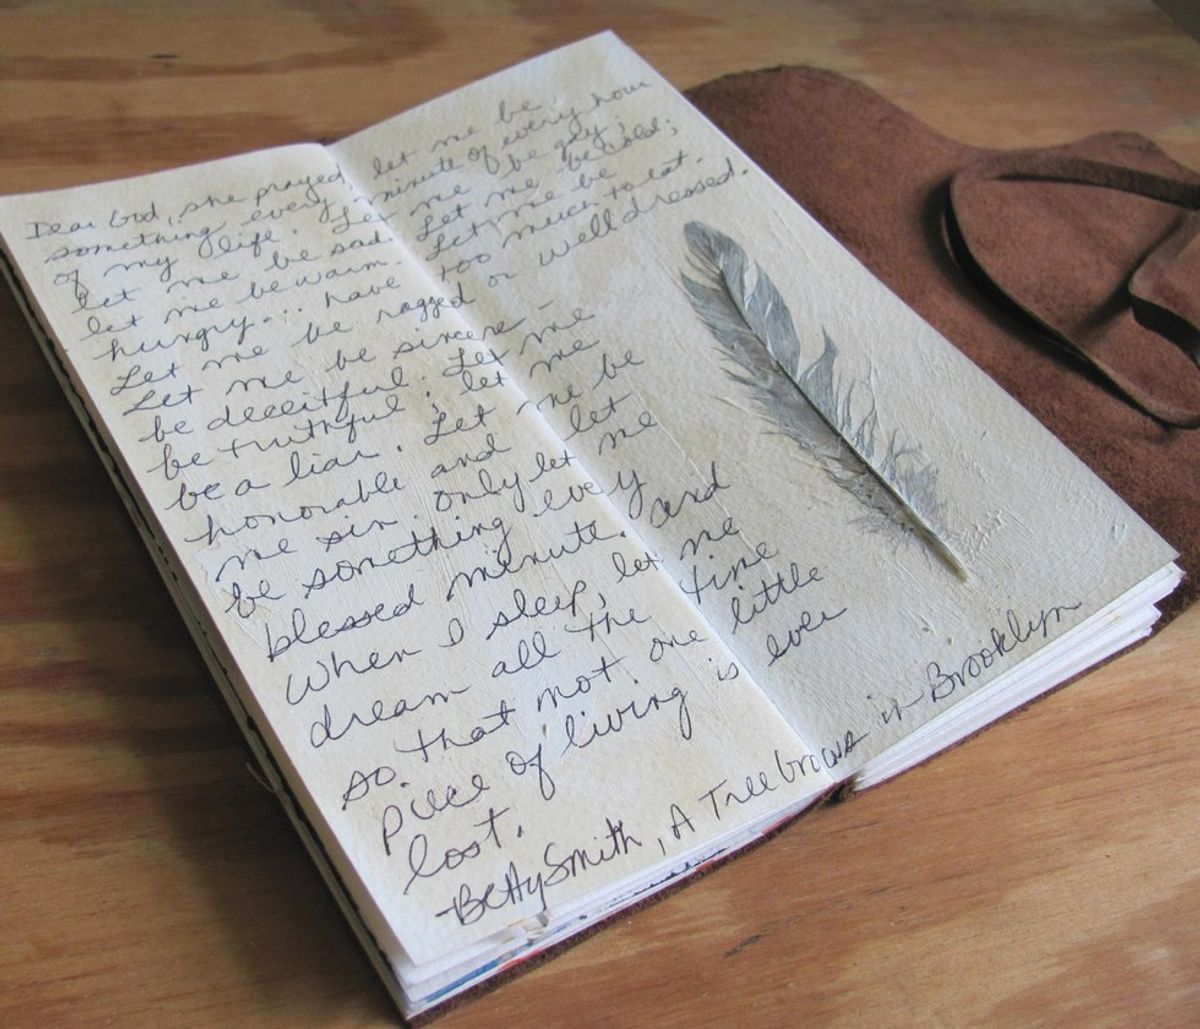 Dear God, she prayed, let me be
something every minute of every hour
of my life. Let me be gay;
let me be sad. Let me be cold;
let me be warm. Let me be
hungry... have too much to eat.
Let me be ragged or well dressed.
Let me be sincere -
be deceitful. Let me
be truthful; let me
be a liar. Let me be
honorable and let
me sin. Only let me
be something every
blessed minute. And
when I sleep, let me
dream all the time
so that not one little
piece of living is ever
lost.
-Betty Smith, A Tree Grows in Brooklyn